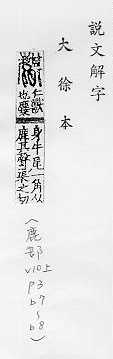 說文解字
大徐本
仁獸
也麋
身牛尾一角从
鹿其聲渠之切
(鹿部
v10上
p3
b7
~
b8)